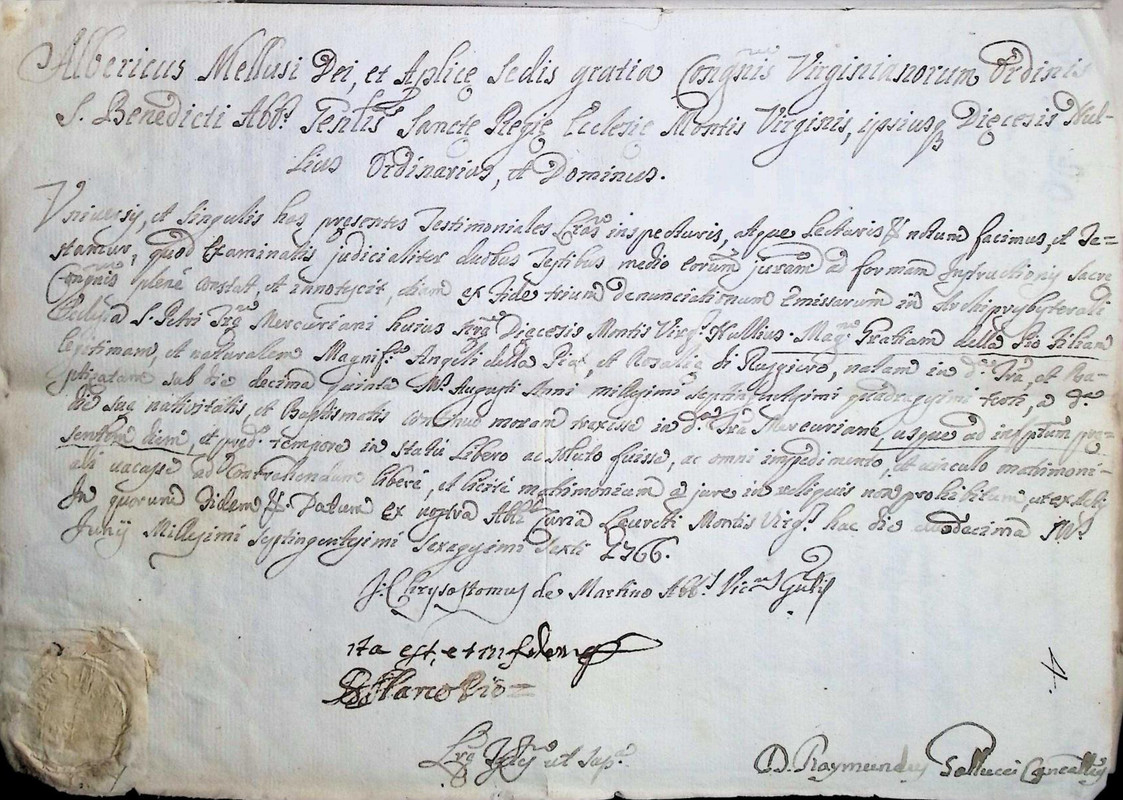 Albericus Mellusi Dei, et Aplicę Sedis gratia Congnis Virginianorum Ordinis
S. Benedicti Abb.s Gentilis Sanctę Regię Ecclesię Montis Virginis, ipsiusq Diecesis Nul-
lius Ordinarius, et Dominus.
Universis, et singulis has pręsentes Testimoniales Lras inspecturis, atque lecturis notum facimus, et te=
stamur, quod Examinatis judicialiter duobus Testibus medio eorum juram. ad formam Instructionis Sacrę
Congnis plenè constat, et innotescit, etiam ex Fide trium denunciationum emissarum in Archipresbyterali
Ecclesia S. Petri Tręę Mercuriani huius Nrę Diecesis Montis Virg. Nullius. Mag.am Gratiam della Pia Filiam
legitimam, et naturalem Magnif. Angeli della Pia, et Rosalię di Ruggiero, natam in d.a Tra, et Ba-
ptizatam sub die decima quinta M. Augusti Anni millesimi septingentesimi quadragesimi tertii, a d.a
die suę nativitatis, et Baptismatis continuò moram traxisse in d.a Tra Mercuriani usque ad insptum prę-
sentem diem, et pręd. tempore in statu libero ac soluto fuisse, ac omni impedimento, et vinculo matrimoni-
ali vacasse ad Contrahendum liberè, et licitè matrimonium à jure in reliquis non prohibitum, ut ex Actis
In quorum Fidem Datum ex nostra Abbli Curia Laureti Montis Virg. hac die duodecima M.
Junij Millesimi Septingentesimi Sexagesimi Sexti 1766.
J. Chrysostomus de Martino Abb.s Vic.us Gnlis
ita est, et in fidem
Marco Pio=
ut sup.a
D. Raymundus Pellucci Cancellus